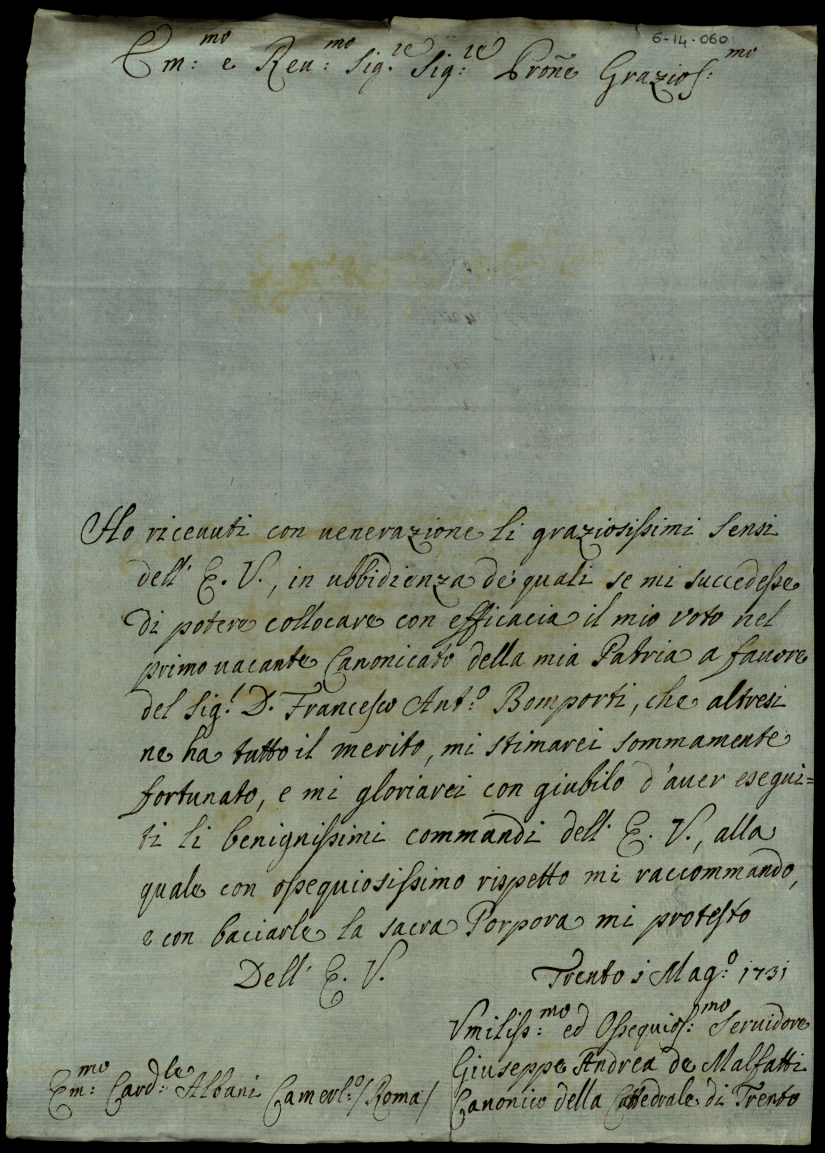 6-14-060
Em:mo e Reu:mo Sig.re Sig:re Proñe Grazios:mo
Ho riceuuti con uenerazione li graziosissimi sensi
dell' E. V., in ubbidienza de' quali se mi succedesse
di potere collocare con efficacia il mio voto nel
primo uacante Canonicato della mia Patria a fauore
del Sig.r D. Francesco Ant:o Bomporti, che altresi
ne ha tutto il merito, mi stimarei sommamente
fortunato, e mi gloriarei con giubilo d'auer esegui=
ti li benignissimi commandi dell' E. V., alla
quale con ossequiosissimo rispetto mi raccommando,
e con baciarle la sacra Porpora mi protesto
Dell' E. V.
Trento Mag:o 1731
Vmiliss:mo ed Ossequios:mo Seruidore
Giuseppe Andrea de Malfatti
Canonico della Cattedrale di Trento
Em:mo Card:le Albani Camerl:o /Roma/